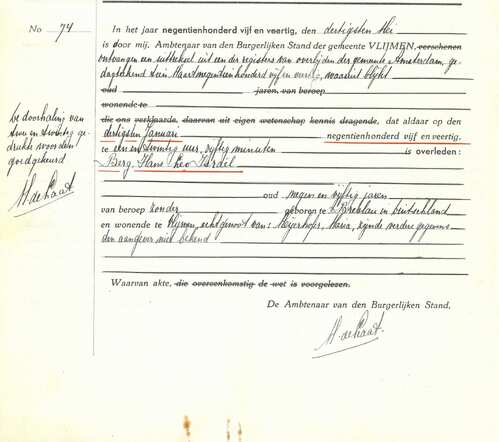 No 74
In het jaar negentienhonderd vijf en veertig, den dertigsten Mei
is door mij, Ambtenaar van den Burgerlijken Stand der gemeente VLIJMEN, verschenen
ontvangen een uittreksel uit een der registers van overlijden der gemeente Amsterdam, ge-
dagteekend Maart negentienhonderd vijf en veertig, waaruit blijkt
oud jaren, van beroep
wonende te
die ons verklaarde, daarvan uit eigen wetenschap kennis dragende, dat aldaar op den
dertigsten Januari negentienhonderd vijf en veertig,
te een en twintig uur, vijftig minuten is overleden:
Berg, Hans Theo
oud negen en vijftig jaren
van beroep zonder geboren te Breslau in Duitschland
en wonende te Vlijmen, echtgenoot van: Meijerhof, Maria, zijnde verdere gegevens
den aangever niet bekend
Waarvan akte, die overeenkomstig de wet is voorgelezen.
De Ambtenaar van den Burgerlijken Stand,
M. de Raat
De doorhaling van
twee en twintig ge-
drukte woorden
goedgekeurd
M. de Raat